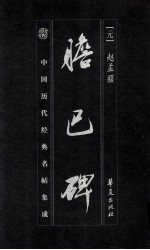 [元] 赵孟頫
膽巴碑
中国历代经典名帖集成
华夏出版社